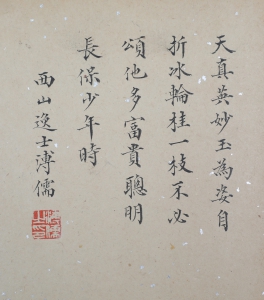 天真英妙玉為姿自
折冰輪桂一枝不必
頌他多富貴聰明
長保少年時
西山逸士溥儒